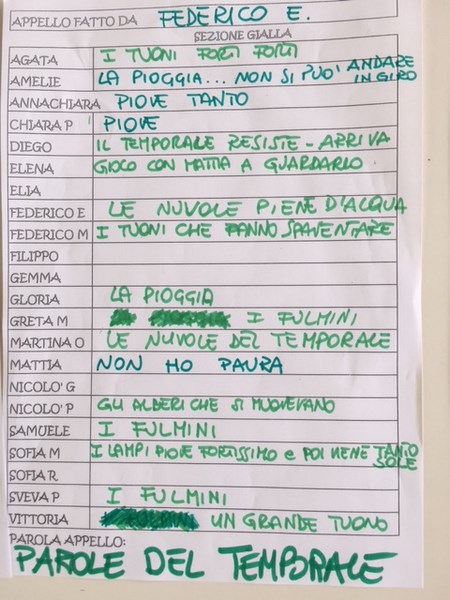 APPELLO FATTO DA FEDERICO E.
SEZIONE GIALLA
AGATA I TUONI FORTI FORTI
AMELIE LA PIOGGIA... NON SI PUO' ANDARE IN GIRO
ANNACHIARA PIOVE TANTO
CHIARA P PIOVE
DIEGO IL TEMPORALE RESISTE - ARRIVA
ELENA GIOCO CON MATTIA A GUARDARLO
ELIA
FEDERICO E LE NUVOLE PIENE D'ACQUA
FEDERICO M I TUONI CHE FANNO SPAVENTARE
FILIPPO
GEMMA
GLORIA LA PIOGGIA
GRETA M I FULMINI
MARTINA O LE NUVOLE DEL TEMPORALE
MATTIA NON HO PAURA
NICOLO' G
NICOLO' P GLI ALBERI CHE SI MUOVEVANO
SAMUELE I FULMINI
SOFIA M I LAMPI PIOVE FORTISSIMO e POI VIENE TANTO SOLE
SOFIA R
SVEVA P I FULMINI
VITTORIA UN GRANDE TUONO
PAROLA APPELLO:
PAROLE DEL TEMPORALE